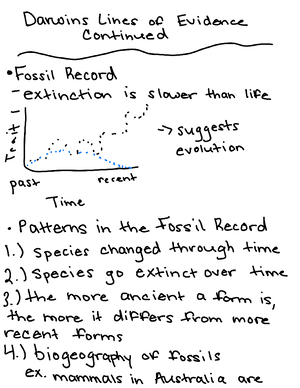 Darwins Lines of Evidence
Continued
• Fossil Record
- extinction is slower than life
Trait
-> suggests
evolution
past
recent
Time
• Patterns in the Fossil Record
1.) species changed through time
2.) Species go extinct over time
3.) the more ancient a form is,
the more it differs from more
recent forms
4.) biogeography of fossils
ex. mammals in Australia are